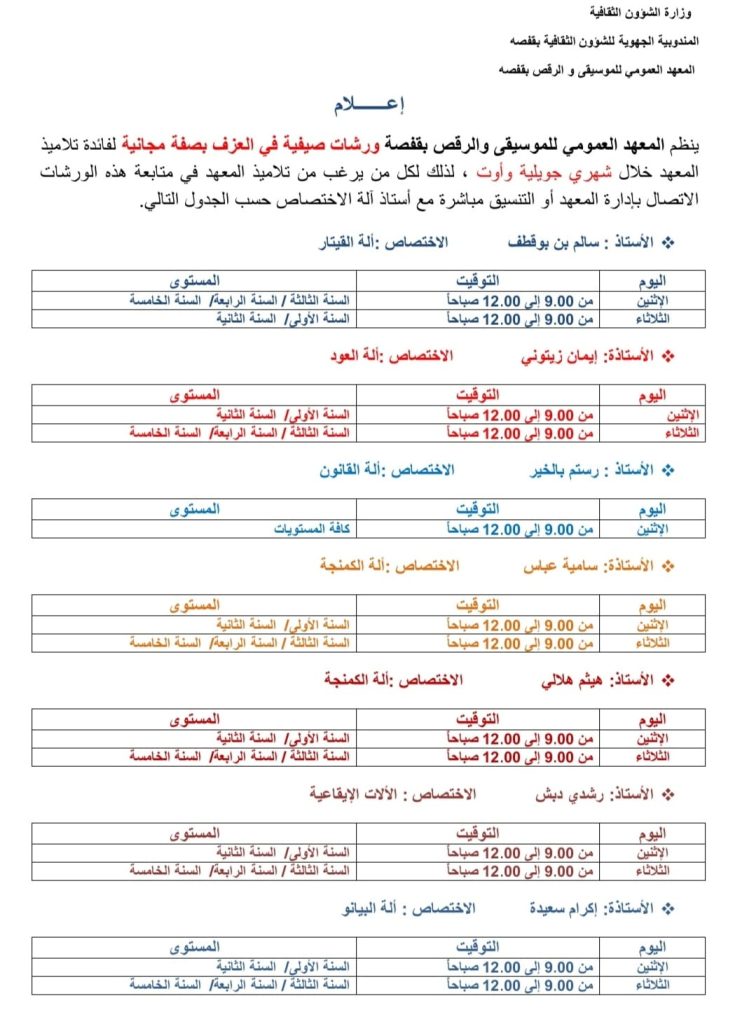 وزارة الشؤون الثقافية
المندوبية الجهوية للشؤون الثقافية بقفصه
المعهد العمومي للموسيقى و الرقص بقفصه
إعـــــلام
ينظم المعهد العمومي للموسيقى والرقص بقفصة ورشات صيفية في العزف بصفة مجانية لفائدة تلاميذ
المعهد خلال شهري جويلية وأوت ، لذلك لكل من يرغب من تلاميذ المعهد في متابعة هذه الورشات
الاتصال بإدارة المعهد أو التنسيق مباشرة مع أستاذ آلة الاختصاص حسب الجدول التالي.
❖ الأستاذ : سالم بن بوقطف الاختصاص :ألة القيتار
اليوم التوقيت المستوى
الإثنين من 9.00 إلى 12.00 صباحاً السنة الثالثة / السنة الرابعة/ السنة الخامسة
الثلاثاء من 9.00 إلى 12.00 صباحاً السنة الأولى/ السنة الثانية
❖ الأستاذة: إيمان زيتوني الاختصاص :ألة العود
اليوم التوقيت المستوى
الإثنين من 9.00 إلى 12.00 صباحاً السنة الأولى/ السنة الثانية
الثلاثاء من 9.00 إلى 12.00 صباحاً السنة الثالثة / السنة الرابعة/ السنة الخامسة
❖ الأستاذ : رستم بالخير الاختصاص :ألة القانون
اليوم التوقيت المستوى
الإثنين من 9.00 إلى 12.00 صباحاً كافة المستويات
❖ الأستاذة: سامية عباس الاختصاص :ألة الكمنجة
اليوم التوقيت المستوى
الإثنين من 9.00 إلى 12.00 صباحاً السنة الأولى/ السنة الثانية
الثلاثاء من 9.00 إلى 12.00 صباحاً السنة الثالثة / السنة الرابعة/ السنة الخامسة
❖ الأستاذ: هيثم هلالي الاختصاص :ألة الكمنجة
اليوم التوقيت المستوى
الإثنين من 9.00 إلى 12.00 صباحاً السنة الأولى/ السنة الثانية
الثلاثاء من 9.00 إلى 12.00 صباحاً السنة الثالثة / السنة الرابعة/ السنة الخامسة
❖ الأستاذ: رشدي دبش الاختصاص : الألات الإيقاعية
اليوم التوقيت المستوى
الإثنين من 9.00 إلى 12.00 صباحاً السنة الأولى/ السنة الثانية
الثلاثاء من 9.00 إلى 12.00 صباحاً السنة الثالثة / السنة الرابعة/ السنة الخامسة
❖ الأستاذة: إكرام سعيدة الاختصاص : ألة البيانو
اليوم التوقيت المستوى
الإثنين من 9.00 إلى 12.00 صباحاً السنة الأولى/ السنة الثانية
الثلاثاء من 9.00 إلى 12.00 صباحاً السنة الثالثة / السنة الرابعة/ السنة الخامسة